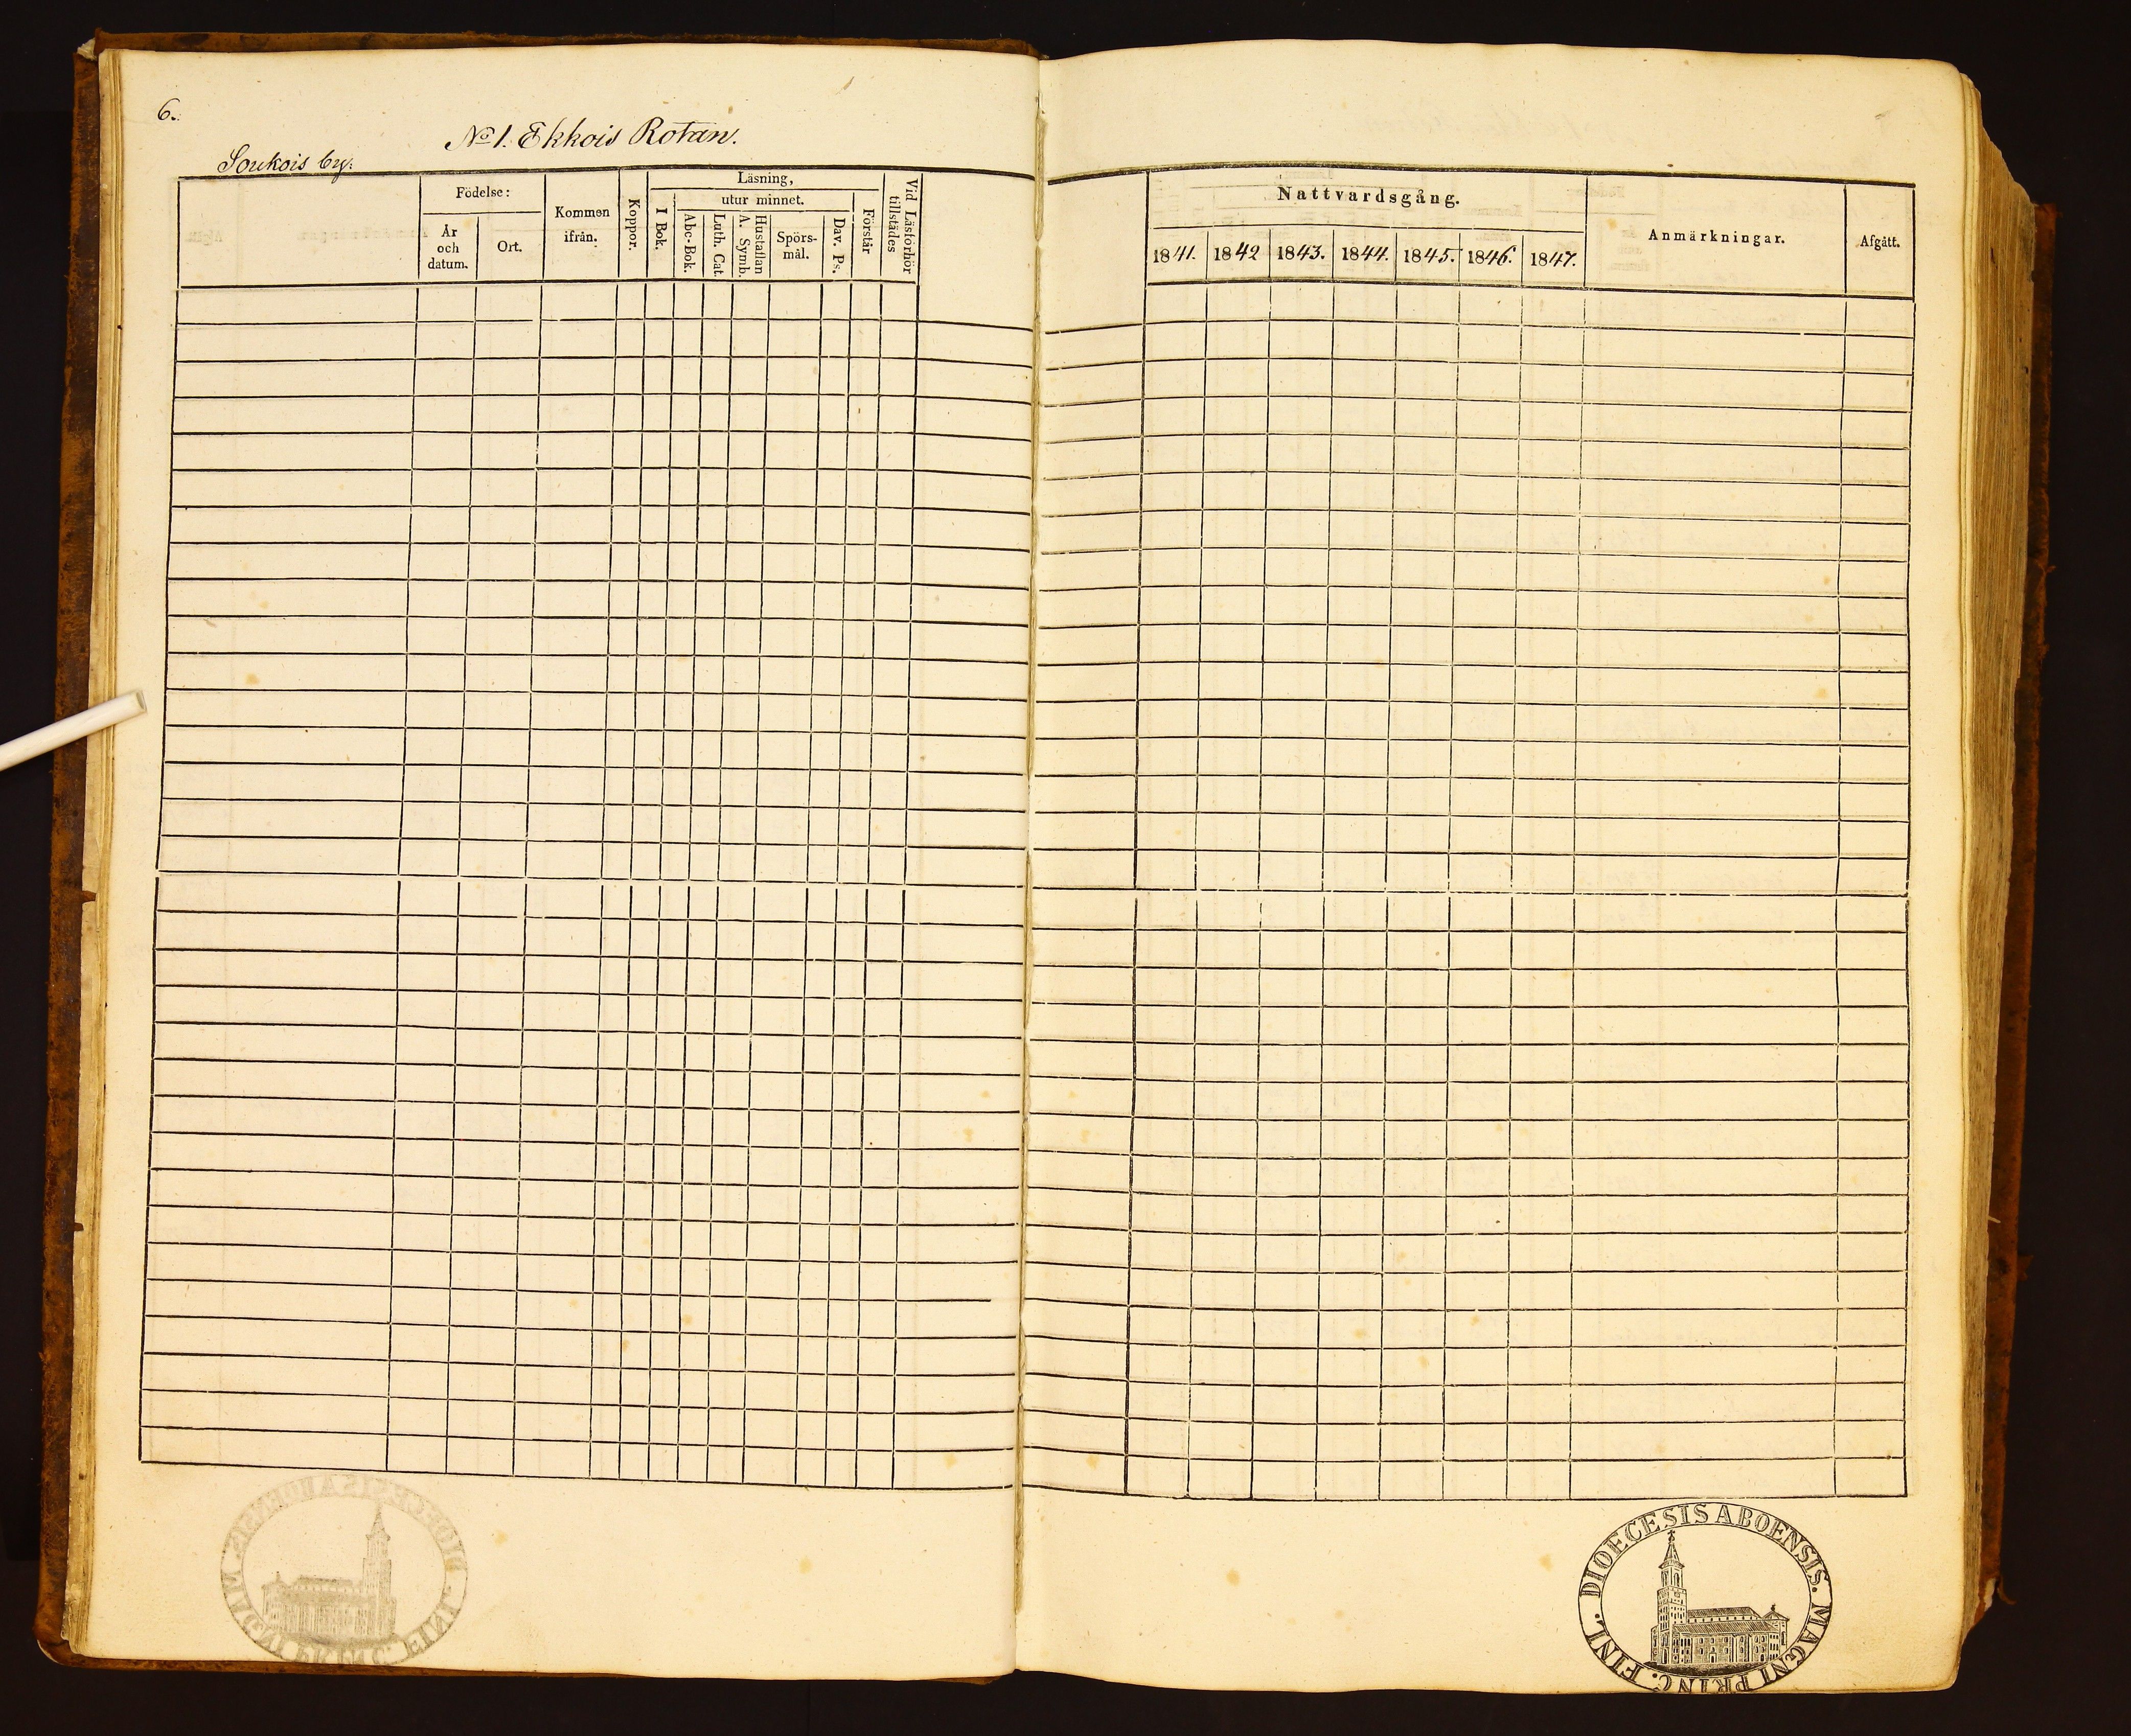 6.
No 1. Ekkois Rotan.
Soukois by:
Födelse:
År och datum.
Ort.
Kommen ifrån.
Koppor.
Läsning,
I Bok.
utur minnet.
Abc-Bok.
Luth. Cat.
A. Symb.
Hustaflan
Spörs-mål.
Dav. Ps.
Förstår
Vid Läsförhör tillstädes
Nattvardsgång.
1841. 1842 1843. 1844. 1845. 1846. 1847.
Anmärkningar.
Afgått.
DIOECESIS ABOENSIS. MAGNI PRINC. FINL.